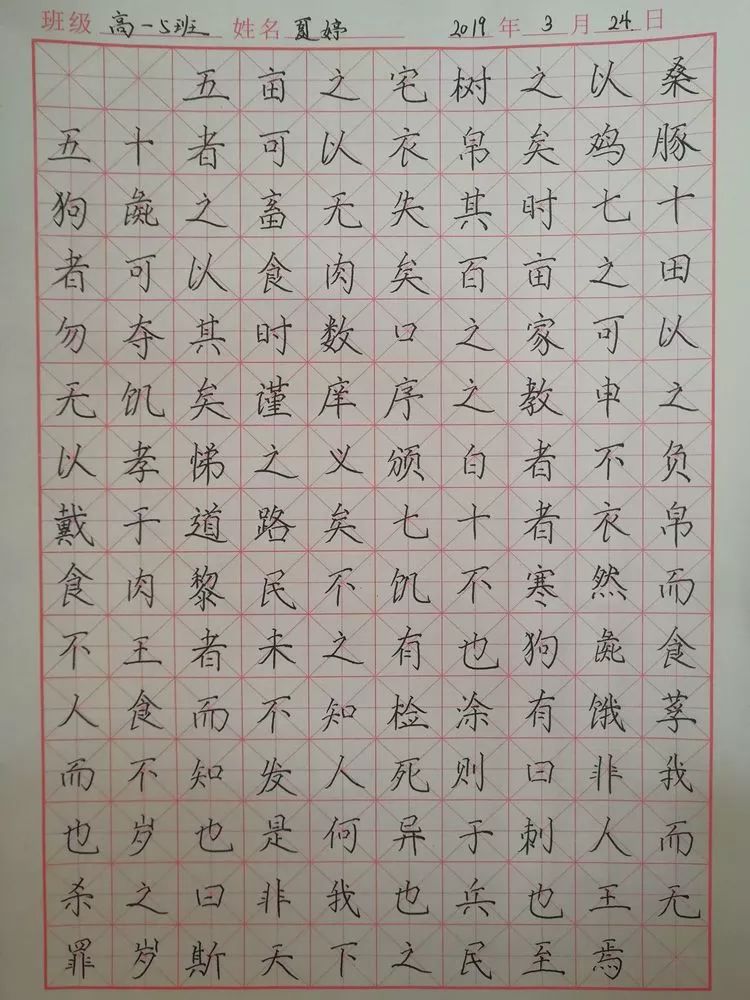 班级 高一5班 姓名 夏婷 2019 年 3 月 24 日
五亩之宅树之以桑
五十者可以衣帛矣鸡豚
狗彘之畜无失其时七十
者可以食肉矣百亩之田
勿夺其时数口之家可以
无饥矣谨庠序之教申之
以孝悌之义颁白者不负
戴于道路矣七十者衣帛
食肉黎民不饥不寒然而
不王者未之有也狗彘食
人食而不知检涂有饿莩
而不知发人死则曰非我
也岁也是何异于刺人而
杀之曰非我也兵也王无
罪岁斯天下之民至焉